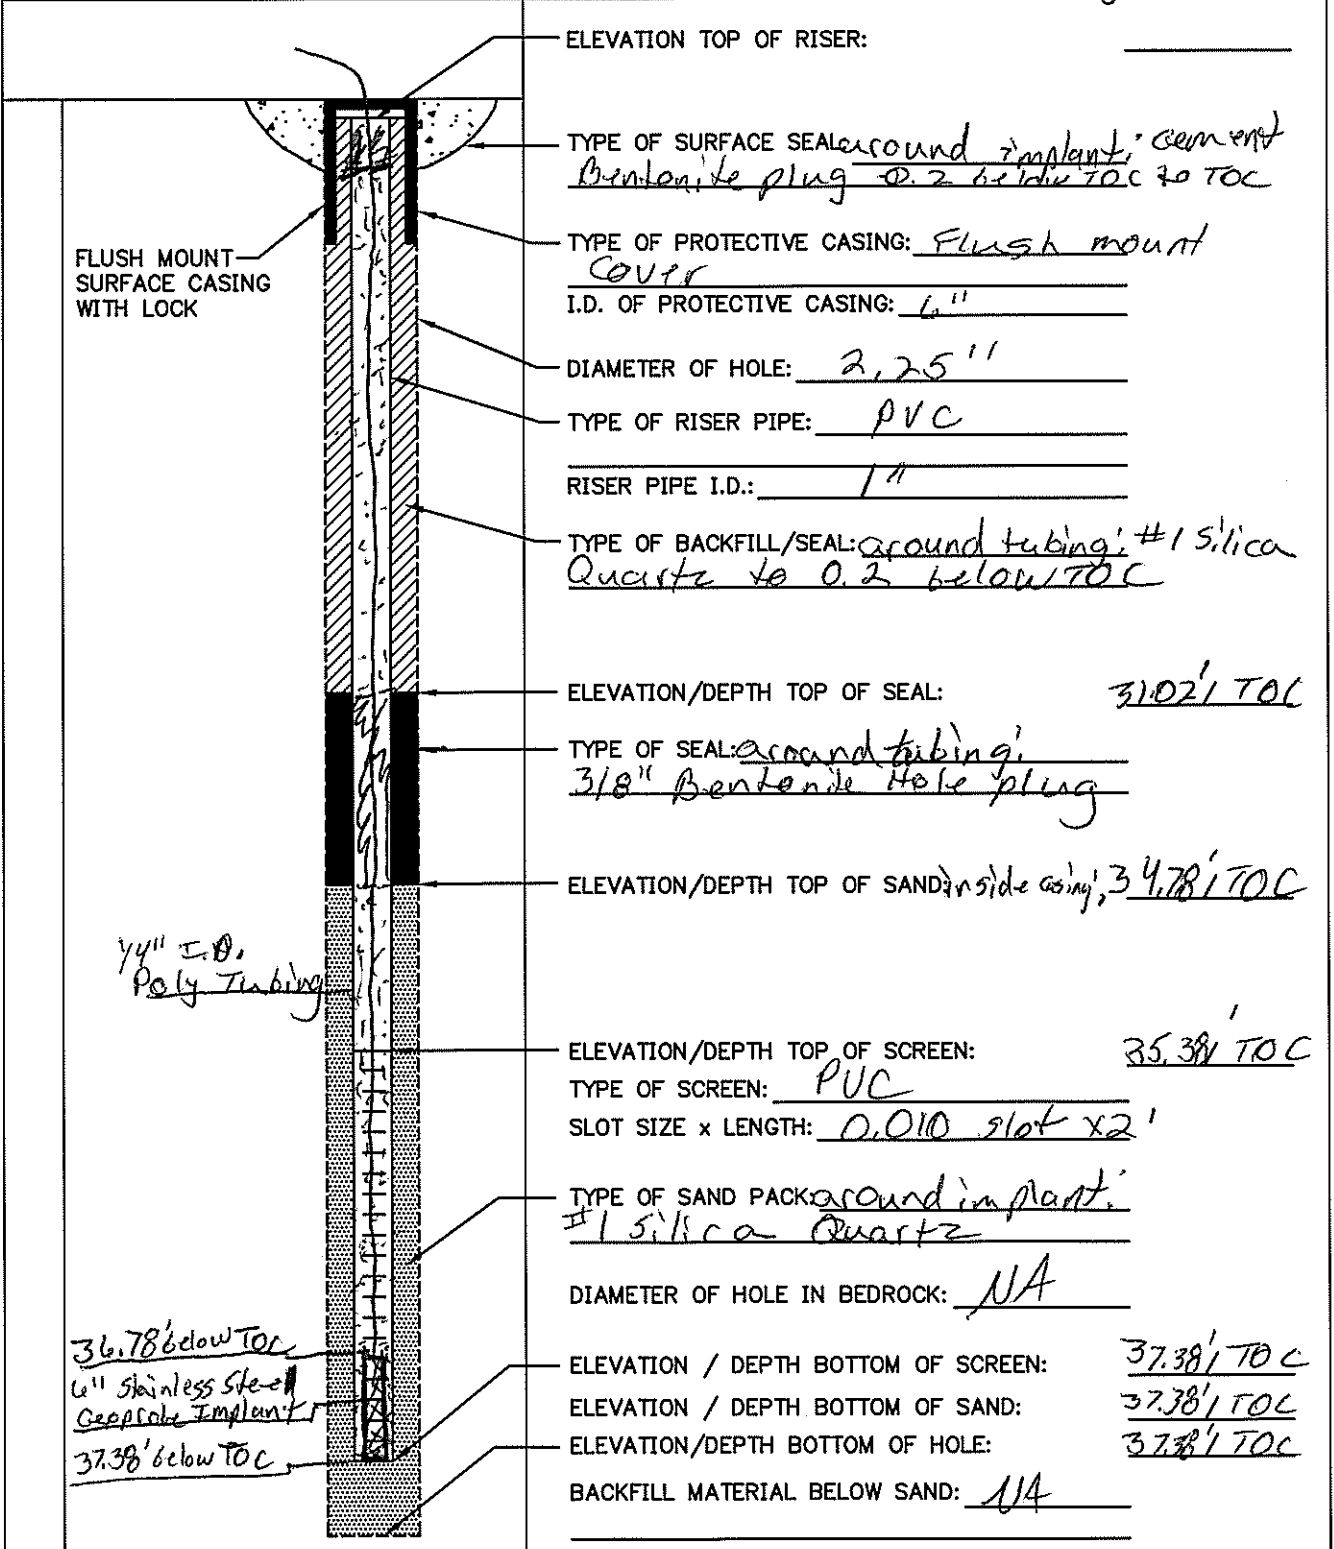 ELEVATION TOP OF RISER:
TYPE OF SURFACE SEAL: around implant: cement
Bentonite plug 0.2 below TOC to TOC
FLUSH MOUNT
SURFACE CASING
WITH LOCK
TYPE OF PROTECTIVE CASING: Flush mount
Cover
I.D. OF PROTECTIVE CASING: 6"
DIAMETER OF HOLE: 2.25"
TYPE OF RISER PIPE: PVC
RISER PIPE I.D.: 1"
TYPE OF BACKFILL/SEAL: around tubing: #1 Silica
Quartz to 0.2 below TOC
ELEVATION/DEPTH TOP OF SEAL: 31.02'/ TOC
TYPE OF SEAL: around tubing:
3/8" Bentonite Hole plug
ELEVATION/DEPTH TOP OF SAND: inside casing; 34.78'/ TOC
1/4" I.D.
Poly Tubing
ELEVATION/DEPTH TOP OF SCREEN: 35.38'/ TOC
TYPE OF SCREEN: PVC
SLOT SIZE x LENGTH: 0.010 slot x2'
TYPE OF SAND PACK: around implant:
#1 Silica Quartz
DIAMETER OF HOLE IN BEDROCK: NA
36.78' below TOC
6" Stainless Steel
Geoprobe Implant
37.38' below TOC
ELEVATION / DEPTH BOTTOM OF SCREEN: 37.38'/ TOC
ELEVATION / DEPTH BOTTOM OF SAND: 37.38'/ TOC
ELEVATION/DEPTH BOTTOM OF HOLE: 37.38'/ TOC
BACKFILL MATERIAL BELOW SAND: NA